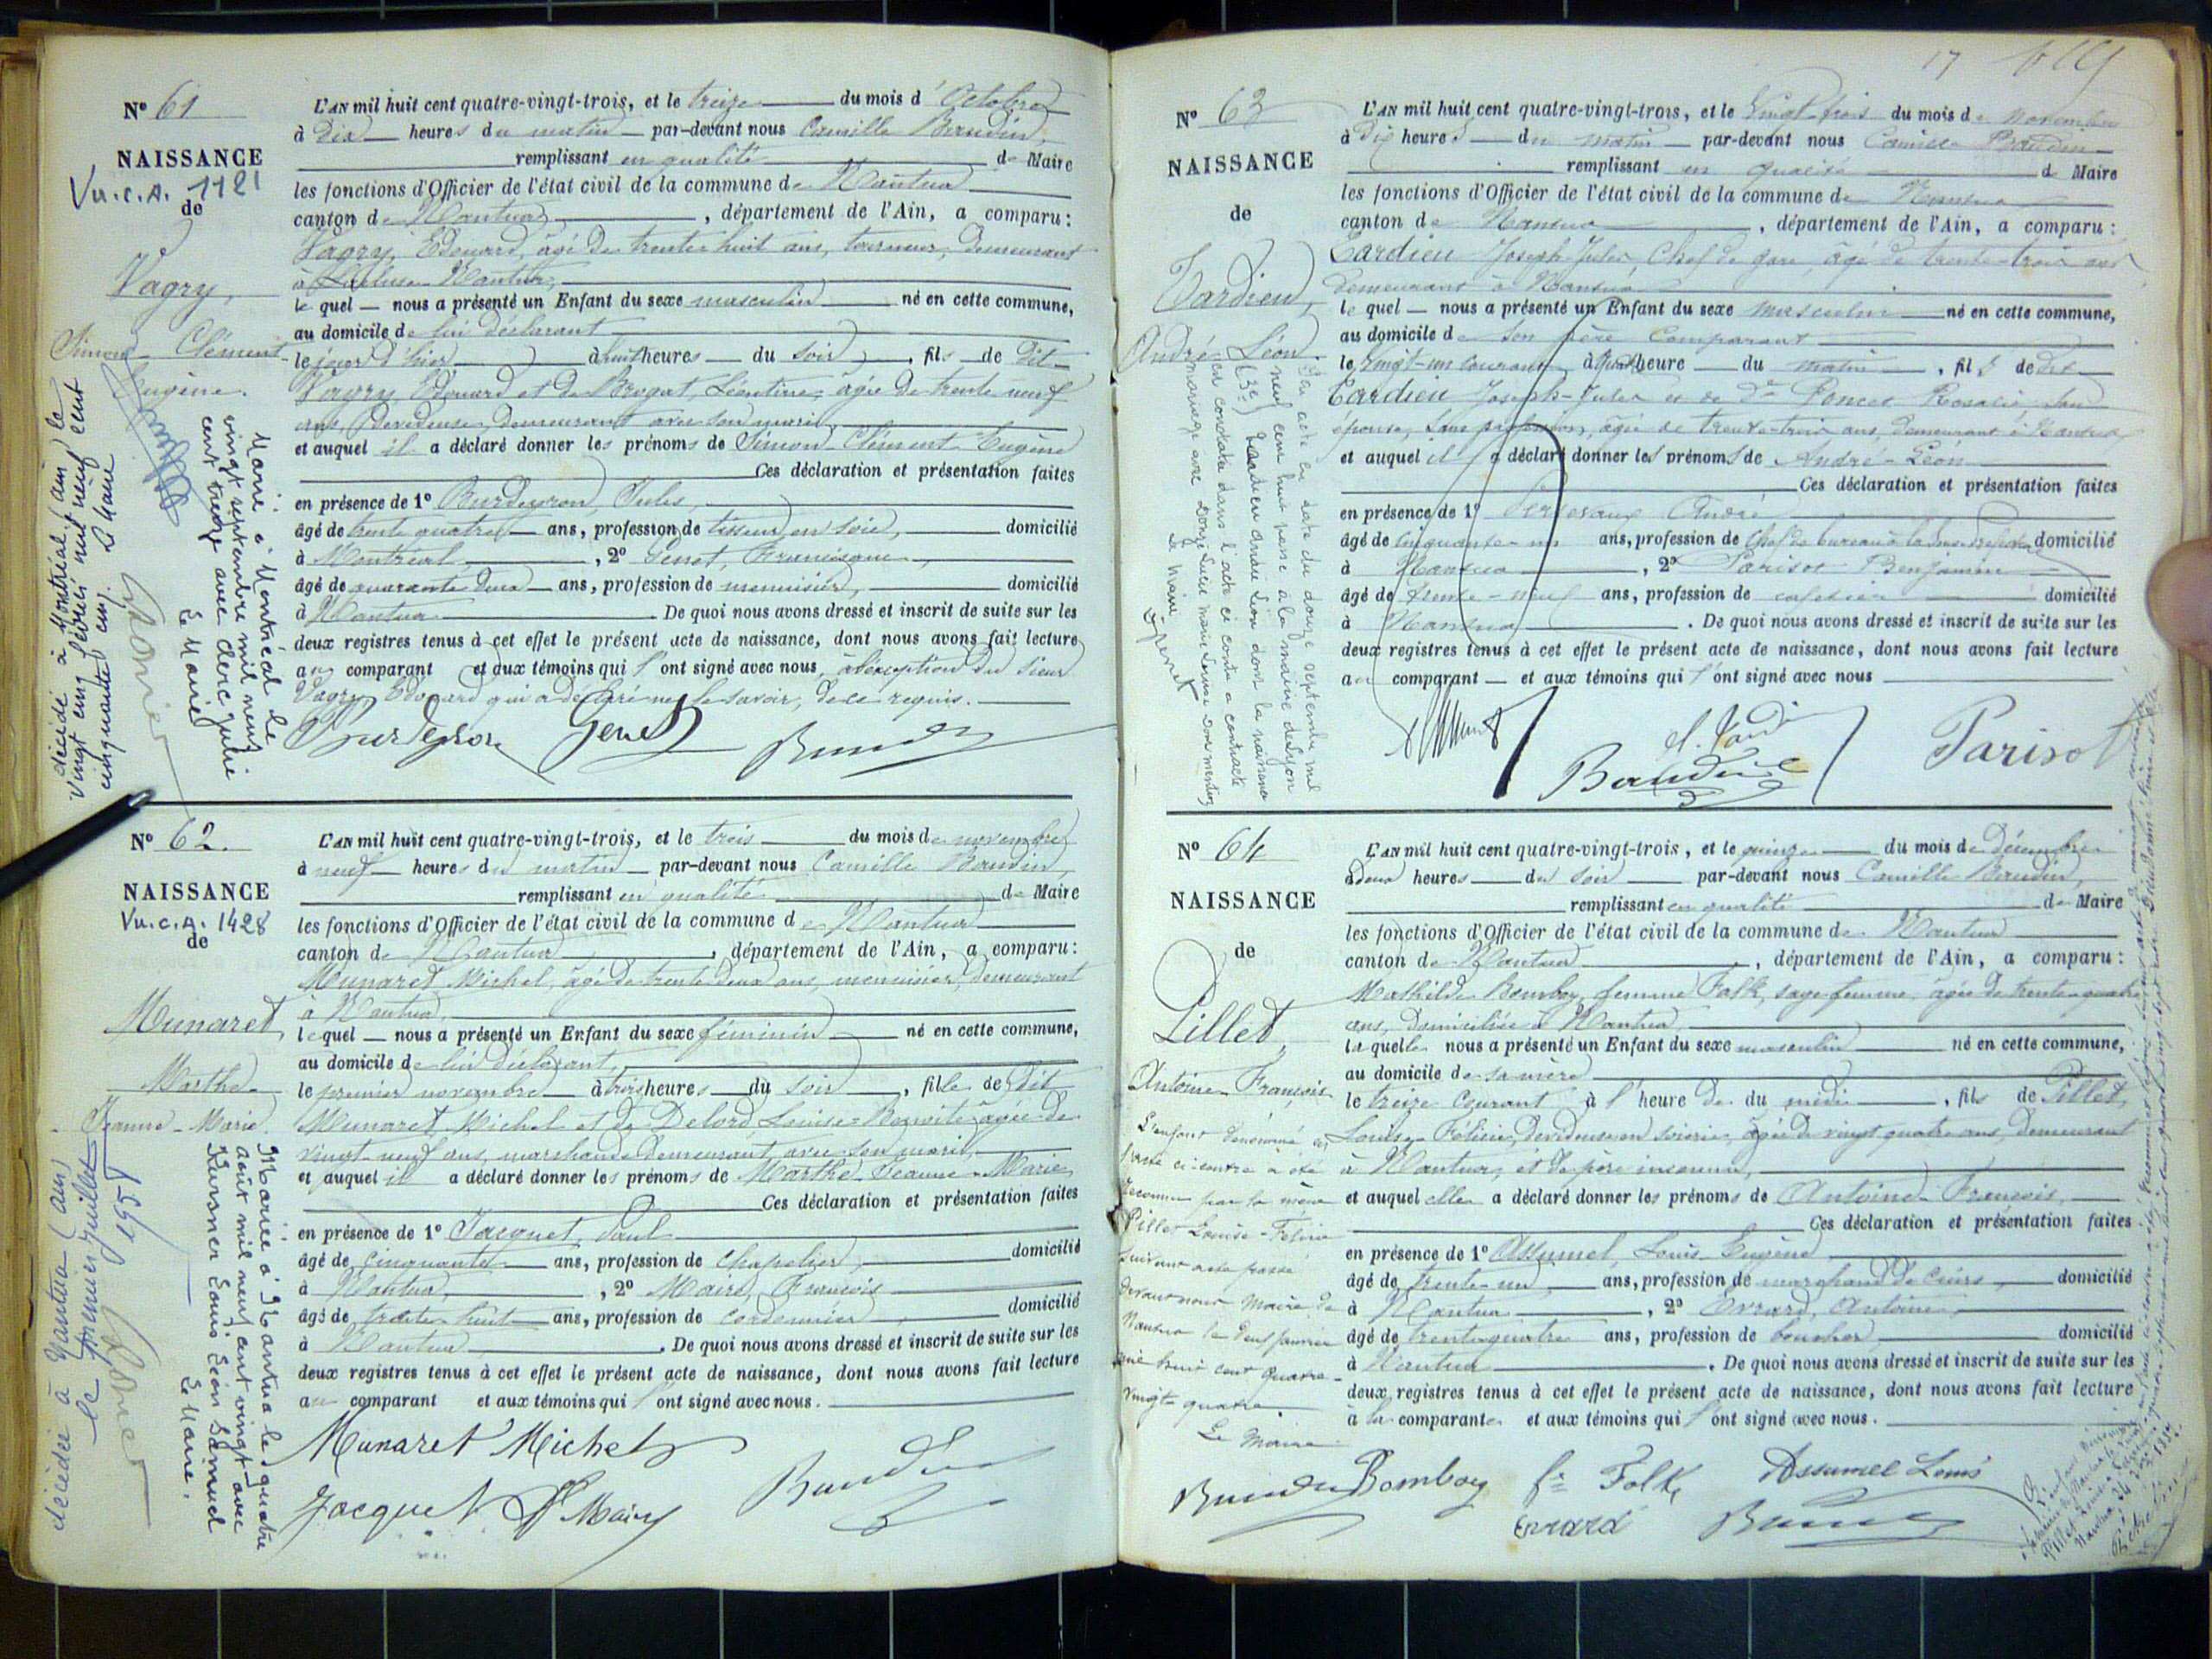 N° 61
NAISSANCE
Vu. C. A. 1121
de
Vagry,
Simon-Clément-
Eugène.
Marié à Montréal le
vingt septembre mil neuf
cent treize avec Clerc Julie
Le Maire
décédé à Montréal (Ain) le
vingt cinq février mil neuf cent
cinquante cinq. Le Maire
L'AN mil huit cent quatre-vingt-trois, et le treize du mois d'Octobre
à Dix heures du matin par-devant nous Camille Baudin,
remplissant en qualité de Maire
les fonctions d'Officier de l'état civil de la commune de Nantua
canton de Nantua, département de l'Ain, a comparu :
Vagry, Edouard, âgé de trente huit ans, tourneur, demeurant
à Nantua,
lequel nous a présenté un Enfant du sexe masculin né en cette commune,
au domicile de lui déclarant
le jour d'hier, à huit heures du soir, fils de Dit
Vagry, Edouard et de Brogat, Léontine, âgée de trente neuf
ans, Dévideuse, demeurant avec son mari,
et auquel il a déclaré donner les prénoms de Simon-Clément-Eugène
Ces déclaration et présentation faites
en présence de 1° Burdeyron, Jules,
âgé de trente quatre ans, profession de tisseur en soie, domicilié
à Montréal, 2° Genet, Francisque,
âgé de quarante deux ans, profession de menuisier, domicilié
à Nantua. De quoi nous avons dressé et inscrit de suite sur les
deux registres tenus à cet effet le présent acte de naissance, dont nous avons fait lecture
au comparant et aux témoins qui l'ont signé avec nous, à l'exception du sieur
Vagry Edouard qui a déclaré ne le savoir, de ce requis.
Burdeyron Genet Baudin
N° 62.
NAISSANCE
Vu. C. A. 1428
de
Munaret,
Marthe-
Jeanne-Marie.
Mariée à Nantua le quatre
août mil neuf cent vingt avec
Kursner Louis Léon Samuel
Le Maire.
décédée à Nantua (Ain)
le premier juillet
1958
L'AN mil huit cent quatre-vingt-trois, et le trois du mois de novembre
à neuf heures du matin par-devant nous Camille Baudin,
remplissant en qualité de Maire
les fonctions d'Officier de l'état civil de la commune de Nantua
canton de Nantua, département de l'Ain, a comparu :
Munaret Michel, âgé de trente deux ans, menuisier, demeurant
à Nantua,
lequel nous a présenté un Enfant du sexe féminin né en cette commune,
au domicile de lui déclarant,
le premier novembre à trois heures du soir, fille de Dit
Munaret Michel et de Delord, Louise-Benoite âgée de
vingt-neuf ans, marchande demeurant avec son mari,
et auquel il a déclaré donner les prénoms de Marthe-Jeanne-Marie
Ces déclaration et présentation faites
en présence de 1° Jacquet, Paul
âgé de cinquante ans, profession de Chapelier, domicilié
à Nantua, 2° Mairy, François
âgé de trente huit ans, profession de cordonnier, domicilié
à Nantua. De quoi nous avons dressé et inscrit de suite sur les
deux registres tenus à cet effet le présent acte de naissance, dont nous avons fait lecture
au comparant et aux témoins qui l'ont signé avec nous.
Munaret Michel
Jacquet Mairy Baudin
17
N° 63
NAISSANCE
de
Tardieu,
André-Léon.
Par acte en date du douze septembre mil
neuf cent huit passé à la mairie de Lyon
(3e) Tardieu André Léon dont la naissance
est constatée dans l'acte ci contre a contracté
mariage avec Lucie Marie Louise Dont mention
Le Maire
L'AN mil huit cent quatre-vingt-trois, et le Vingt-trois du mois de novembre
à Dix heures du matin par-devant nous Camille Baudin
remplissant en qualité de Maire
les fonctions d'Officier de l'état civil de la commune de Nantua
canton de Nantua, département de l'Ain, a comparu :
Tardieu Joseph-Jules, Chef de gare, âgé de trente-trois ans
demeurant à Nantua
lequel nous a présenté un Enfant du sexe masculin né en cette commune,
au domicile de son père comparant
le vingt-un courant, à heure du matin, fils de Dit
Tardieu Joseph-Jules et de De Poncet Rosalie, son
épouse, sans profession, âgée de trente-trois ans, demeurant à Nantua
et auquel il a déclaré donner les prénoms de André-Léon
Ces déclaration et présentation faites
en présence de 1° André
âgé de cinquante-un ans, profession de Chef de bureau à la sous-Préfecture domicilié
à Nantua, 2° Parisot Benjamin
âgé de trente-neuf ans, profession de cafetier domicilié
à Nantua. De quoi nous avons dressé et inscrit de suite sur les
deux registres tenus à cet effet le présent acte de naissance, dont nous avons fait lecture
au comparant et aux témoins qui l'ont signé avec nous
Baudin Parisot
N° 64
NAISSANCE
de
Pillet,
Antoine-François
L'enfant dénommé en
l'acte ci-contre a été
reconnu par sa mère
Pillet Louise-Félicie
suivant acte passé
devant nous Maire de
Nantua le deux janvier
mil huit cent quatre-
vingt-quatre.
Le Maire
Baudin
L'AN mil huit cent quatre-vingt-trois, et le quinze du mois de Décembre
à deux heures du soir par-devant nous Camille Baudin,
remplissant en qualité de Maire
les fonctions d'Officier de l'état civil de la commune de Nantua
canton de Nantua, département de l'Ain, a comparu :
Mathilde Bomboy, femme Folk, sage-femme, âgée de trente-quatre
ans, domiciliée à Nantua
laquelle nous a présenté un Enfant du sexe masculin né en cette commune,
au domicile de sa mère
le treize courant à l'heure de du midi, fils de Pillet,
Louise-Félicie, dévideuse en soierie, âgée de vingt quatre ans, demeurant
à Nantua, et de père inconnu,
et auquel elle a déclaré donner les prénoms de Antoine-François
Ces déclaration et présentation faites
en présence de 1° Assumel, Louis Eugène
âgé de trente-un ans, profession de marchand de cuirs, domicilié
à Nantua, 2° Evrard, Antoine,
âgé de trente quatre ans, profession de boucher domicilié
à Nantua. De quoi nous avons dressé et inscrit de suite sur les
deux registres tenus à cet effet le présent acte de naissance, dont nous avons fait lecture
à la comparante et aux témoins qui l'ont signé avec nous.
Bomboy fe Folk Assumel Louis
Evrard Baudin